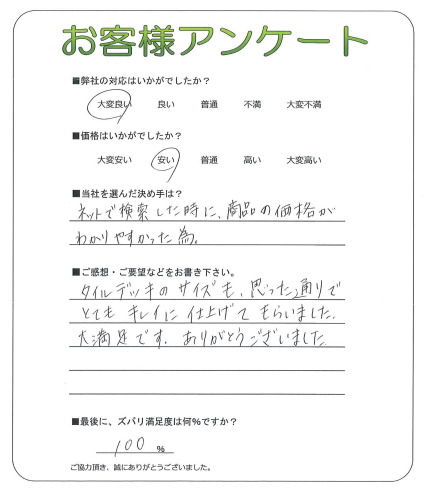 お客様アンケート
■弊社の対応はいかがでしたか？
大変良い 良い 普通 不満 大変不満
■価格はいかがでしたか？
大変安い 安い 普通 高い 大変高い
■当社を選んだ決め手は？
ネットで検索した時に、商品の価格が
わかりやすかった為。
■ご感想・ご要望などをお書き下さい。
タイルデッキのサイズも、思った通りで
とても キレイに 仕上げて もらいました。
大満足です。ありがとうございました
■最後に、ズバリ満足度は何％ですか？
100 %
ご協力頂き、誠にありがとうございました。